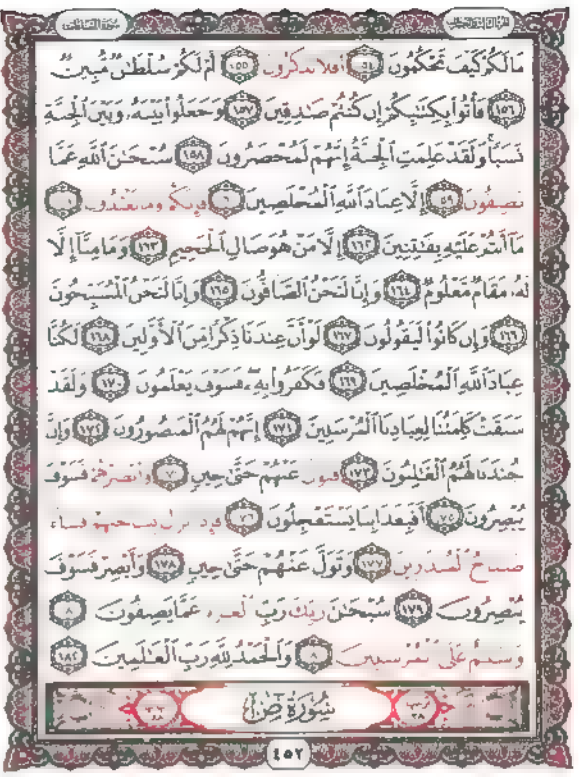 الجزء الثالث والعشرون سورة الصافات
مَا لَكُمْ كَيْفَ تَحْكُمُونَ ١٥٤ أَفَلَا تَذَكَّرُونَ ١٥٥ أَمْ لَكُمْ سُلْطَٰنٌ مُّبِينٌ
١٥٦ فَأْتُوا۟ بِكِتَٰبِكُمْ إِن كُنتُمْ صَٰدِقِينَ ١٥٧ وَجَعَلُوا۟ بَيْنَهُۥ وَبَيْنَ ٱلْجِنَّةِ
نَسَبًا وَلَقَدْ عَلِمَتِ ٱلْجِنَّةُ إِنَّهُمْ لَمُحْضَرُونَ ١٥٨ سُبْحَٰنَ ٱللَّهِ عَمَّا
يَصِفُونَ ١٥٩ إِلَّا عِبَادَ ٱللَّهِ ٱلْمُخْلَصِينَ ١٦٠ فَإِنَّكُمْ وَمَا تَعْبُدُونَ ١٦١
مَآ أَنتُمْ عَلَيْهِ بِفَٰتِنِينَ ١٦٢ إِلَّا مَنْ هُوَ صَالِ ٱلْجَحِيمِ ١٦٣ وَمَا مِنَّآ إِلَّا
لَهُۥ مَقَامٌ مَّعْلُومٌ ١٦٤ وَإِنَّا لَنَحْنُ ٱلصَّآفُّونَ ١٦٥ وَإِنَّا لَنَحْنُ ٱلْمُسَبِّحُونَ
١٦٦ وَإِن كَانُوا۟ لَيَقُولُونَ ١٦٧ لَوْ أَنَّ عِندَنَا ذِكْرًا مِّنَ ٱلْأَوَّلِينَ ١٦٨ لَكُنَّا
عِبَادَ ٱللَّهِ ٱلْمُخْلَصِينَ ١٦٩ فَكَفَرُوا۟ بِهِۦ فَسَوْفَ يَعْلَمُونَ ١٧٠ وَلَقَدْ
سَبَقَتْ كَلِمَتُنَا لِعِبَادِنَا ٱلْمُرْسَلِينَ ١٧١ إِنَّهُمْ لَهُمُ ٱلْمَنصُورُونَ ١٧٢ وَإِنَّ
جُندَنَا لَهُمُ ٱلْغَٰلِبُونَ ١٧٣ فَتَوَلَّ عَنْهُمْ حَتَّىٰ حِينٍ ١٧٤ وَأَبْصِرْهُمْ فَسَوْفَ
يُبْصِرُونَ ١٧٥ أَفَبِعَذَابِنَا يَسْتَعْجِلُونَ ١٧٦ فَإِذَا نَزَلَ بِسَاحَتِهِمْ فَسَآءَ
صَبَاحُ ٱلْمُنذَرِينَ ١٧٧ وَتَوَلَّ عَنْهُمْ حَتَّىٰ حِينٍ ١٧٨ وَأَبْصِرْ فَسَوْفَ
يُبْصِرُونَ ١٧٩ سُبْحَٰنَ رَبِّكَ رَبِّ ٱلْعِزَّةِ عَمَّا يَصِفُونَ ١٨٠
وَسَلَٰمٌ عَلَى ٱلْمُرْسَلِينَ ١٨١ وَٱلْحَمْدُ لِلَّهِ رَبِّ ٱلْعَٰلَمِينَ ١٨٢
سُورَةُ صٓ
٤٥٢